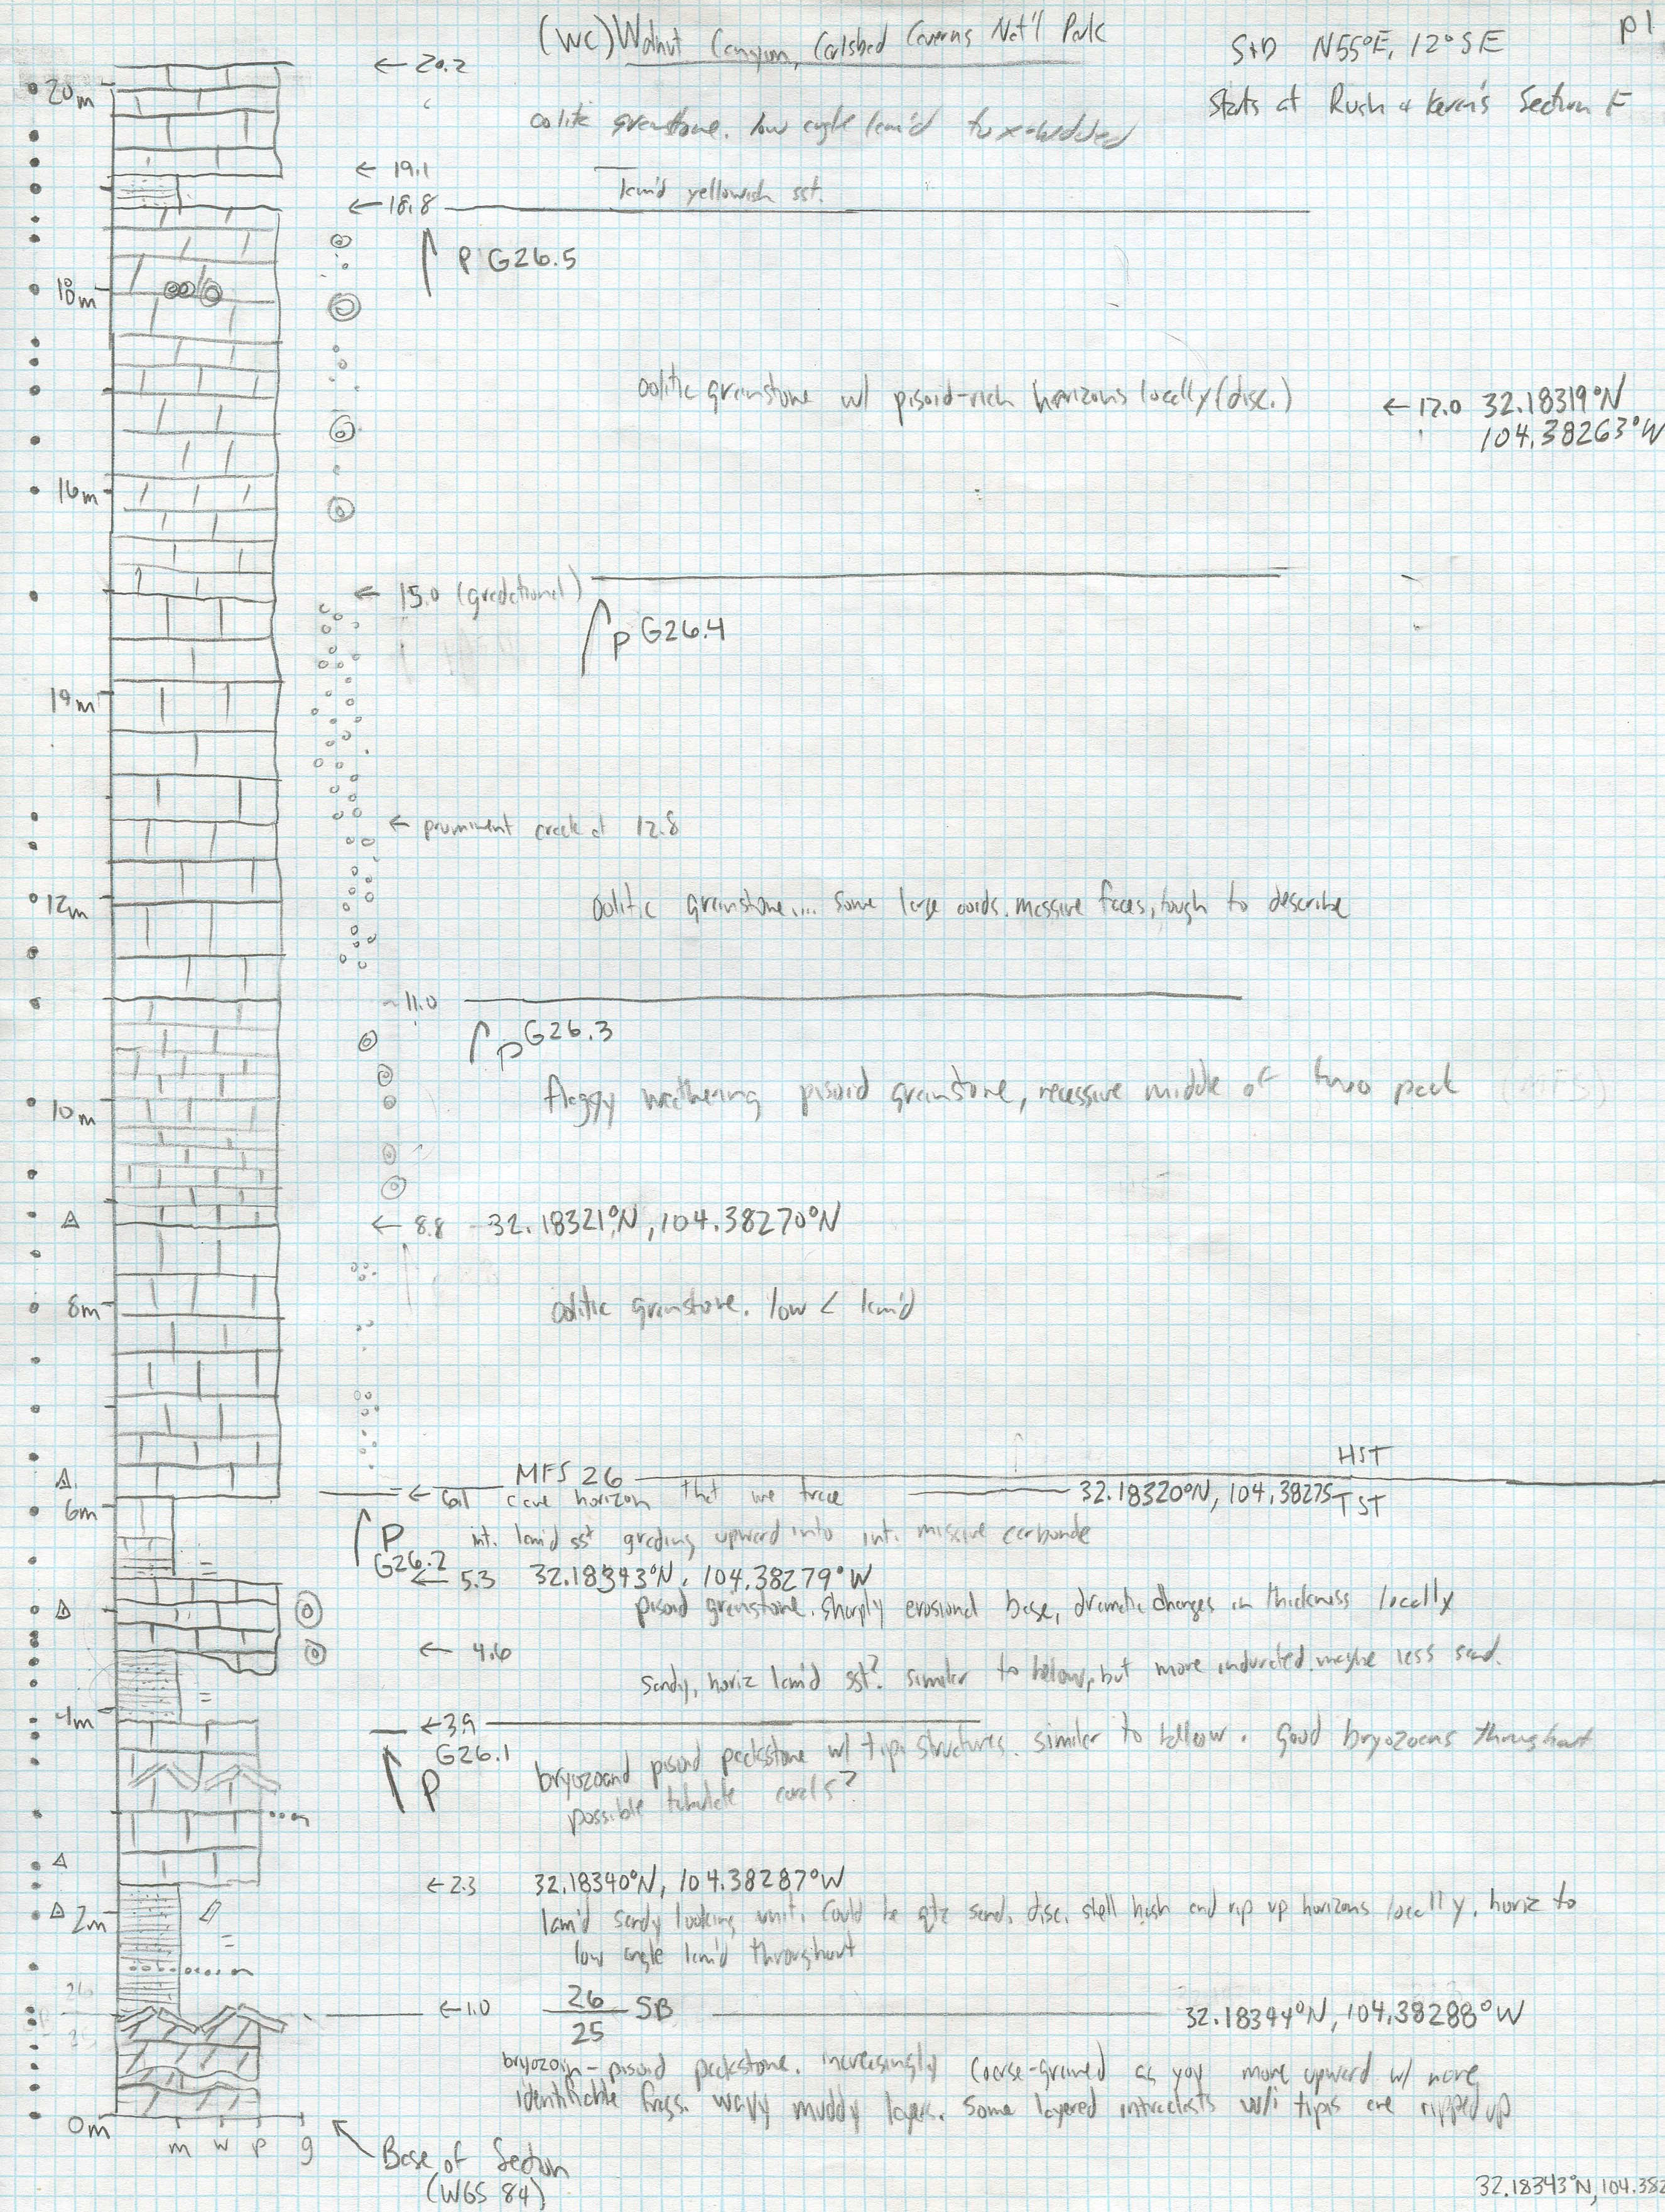 (WC) Walnut Canyon, Carlsbad Caverns Nat'l Park
p1
S+D N55°E, 12°SE
Starts at Rush + Kerans Section F
← 20.2
20m
oolitic grainstone. low angle lam'd to x-bedded
← 19.1
lam'd yellowish sst.
← 18.8
P G26.5
18m
oolitic grainstone w/ pisoid-rich horizons locally (disc.)
← 17.0 32.18319°N
104.38263°W
16m
← 15.0 (gradational)
P G26.4
14m
← prominent crack at 12.8
12m
oolitic grainstone.... some large ooids. massive faces, tough to describe
~11.0
P G26.3
flaggy weathering pisoid grainstone, recessive middle of two pack
10m
← 8.8 32.18321°N, 104.38270°N
8m
oolitic grainstone. low < lam'd
HST
MFS 26
← 6.1 cave horizon that we trace
32.18320°N, 104.38275
TST
6m
P G26.2
int. lam'd sst grading upward into int. massive carbonate
← 5.3 32.18343°N, 104.38279°W
pisoid grainstone. Sharply erosional base, dramatic changes in thickness locally
← 4.6
sandy, horiz lam'd sst? similar to below, but more indurated. maybe less sand.
4m
← 3.9
P G26.1
bryozoand pisoid packstone w/ tipi structures. similar to bellow. Good bryozoans throughout
possible tabulate corals?
← 2.3 32.18340°N, 104.38287°W
2m
lam'd sandy looking unit. Could be qtz sand. disc. shell hash and rip up horizons locally. horiz to
low angle lam'd throughout
← 1.0 26
25 SB
32.18344°N, 104.38288°W
26
25
bryozoan-pisoid packstone. increasingly coarse-grained as you move upward w/ more
identifiable frags. wavy muddy layers. Some layered intraclasts w/i tipis are ripped up
0m
m w p g
Base of Section
(WGS 84)
32.18343°N, 104.382